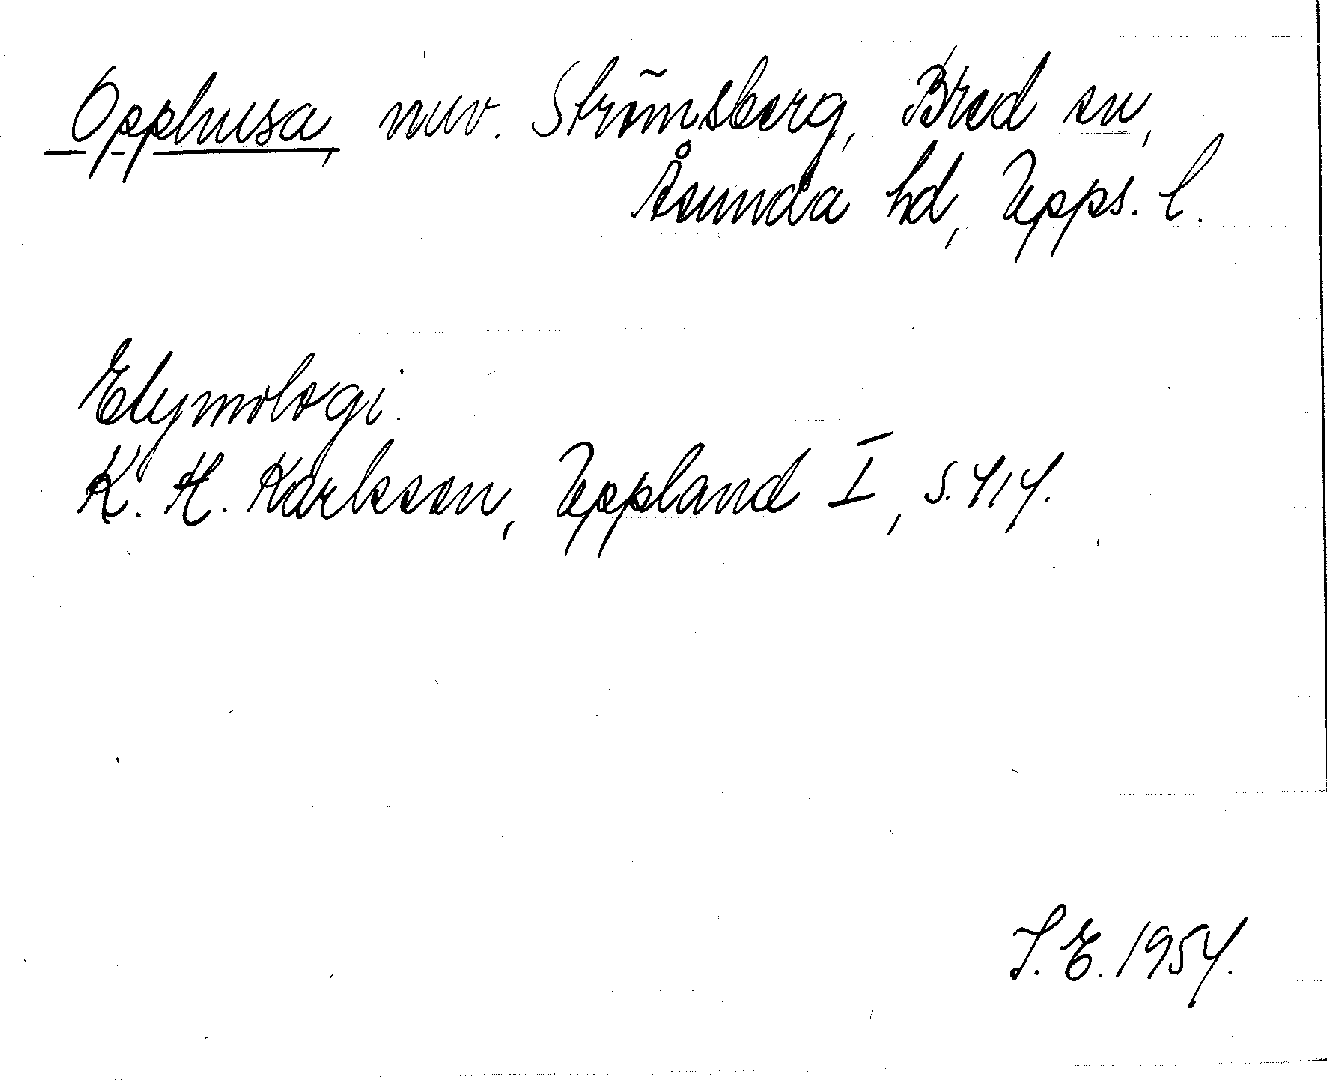 Opphusa, nuv. Strömsberg, Bred sn,
Åsunda hd, Upps. l.
Etymologi.
K. H. Karlsson, Uppland I, s. 414.
S. E. 1954.